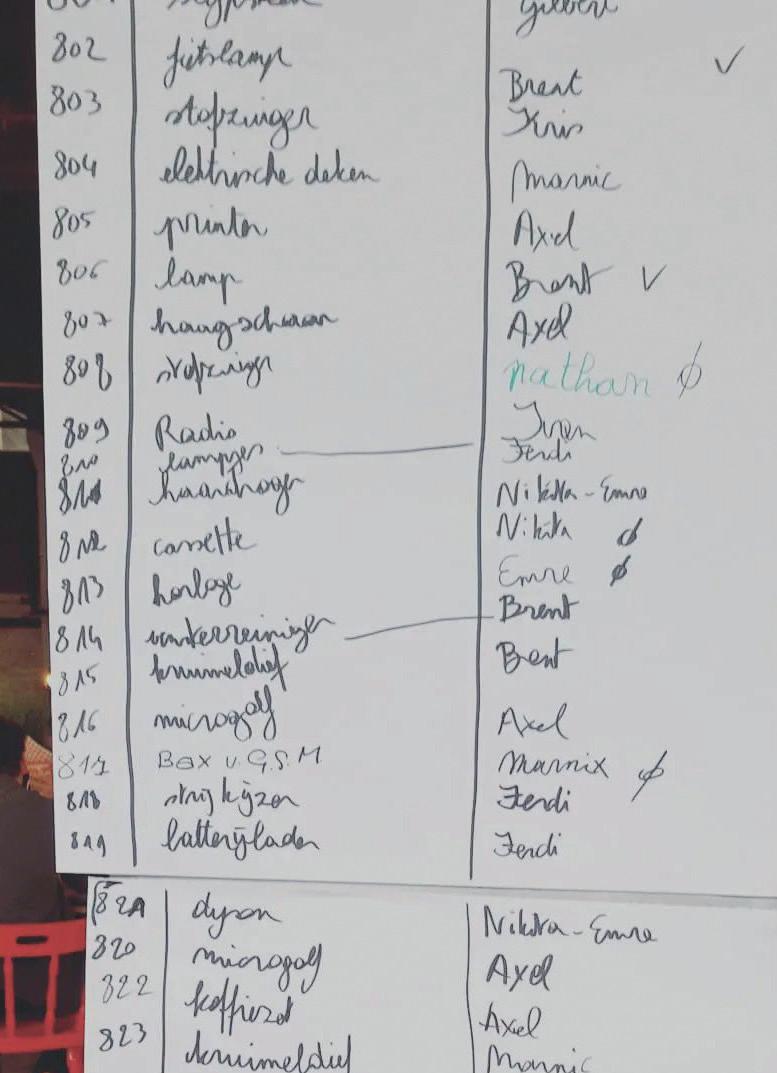 Gilbert
802 fietslamp Brent ✓
803 stofzuiger Kris
804 elektrische deken Marnic
805 printer Axel
806 lamp Brent ✓
807 haagschaar Axel
808 stofzuiger nathan ∅
809 Radio Iven
810 lampjes Ferdi
811 haardroger Nikita-Emre
812 cassette Nikita ∅
813 horloge Emre ∅
814 Brent
815 kruimeldief Brent
816 microgolf Axel
817 Box v. G.S.M Marnix ∅
818 strijkijzer Ferdi
819 batterijlader Ferdi
821 dyson Nikita-Emre
820 microgolf Axel
822 koffiezet Axel
823 kruimeldief Marnic